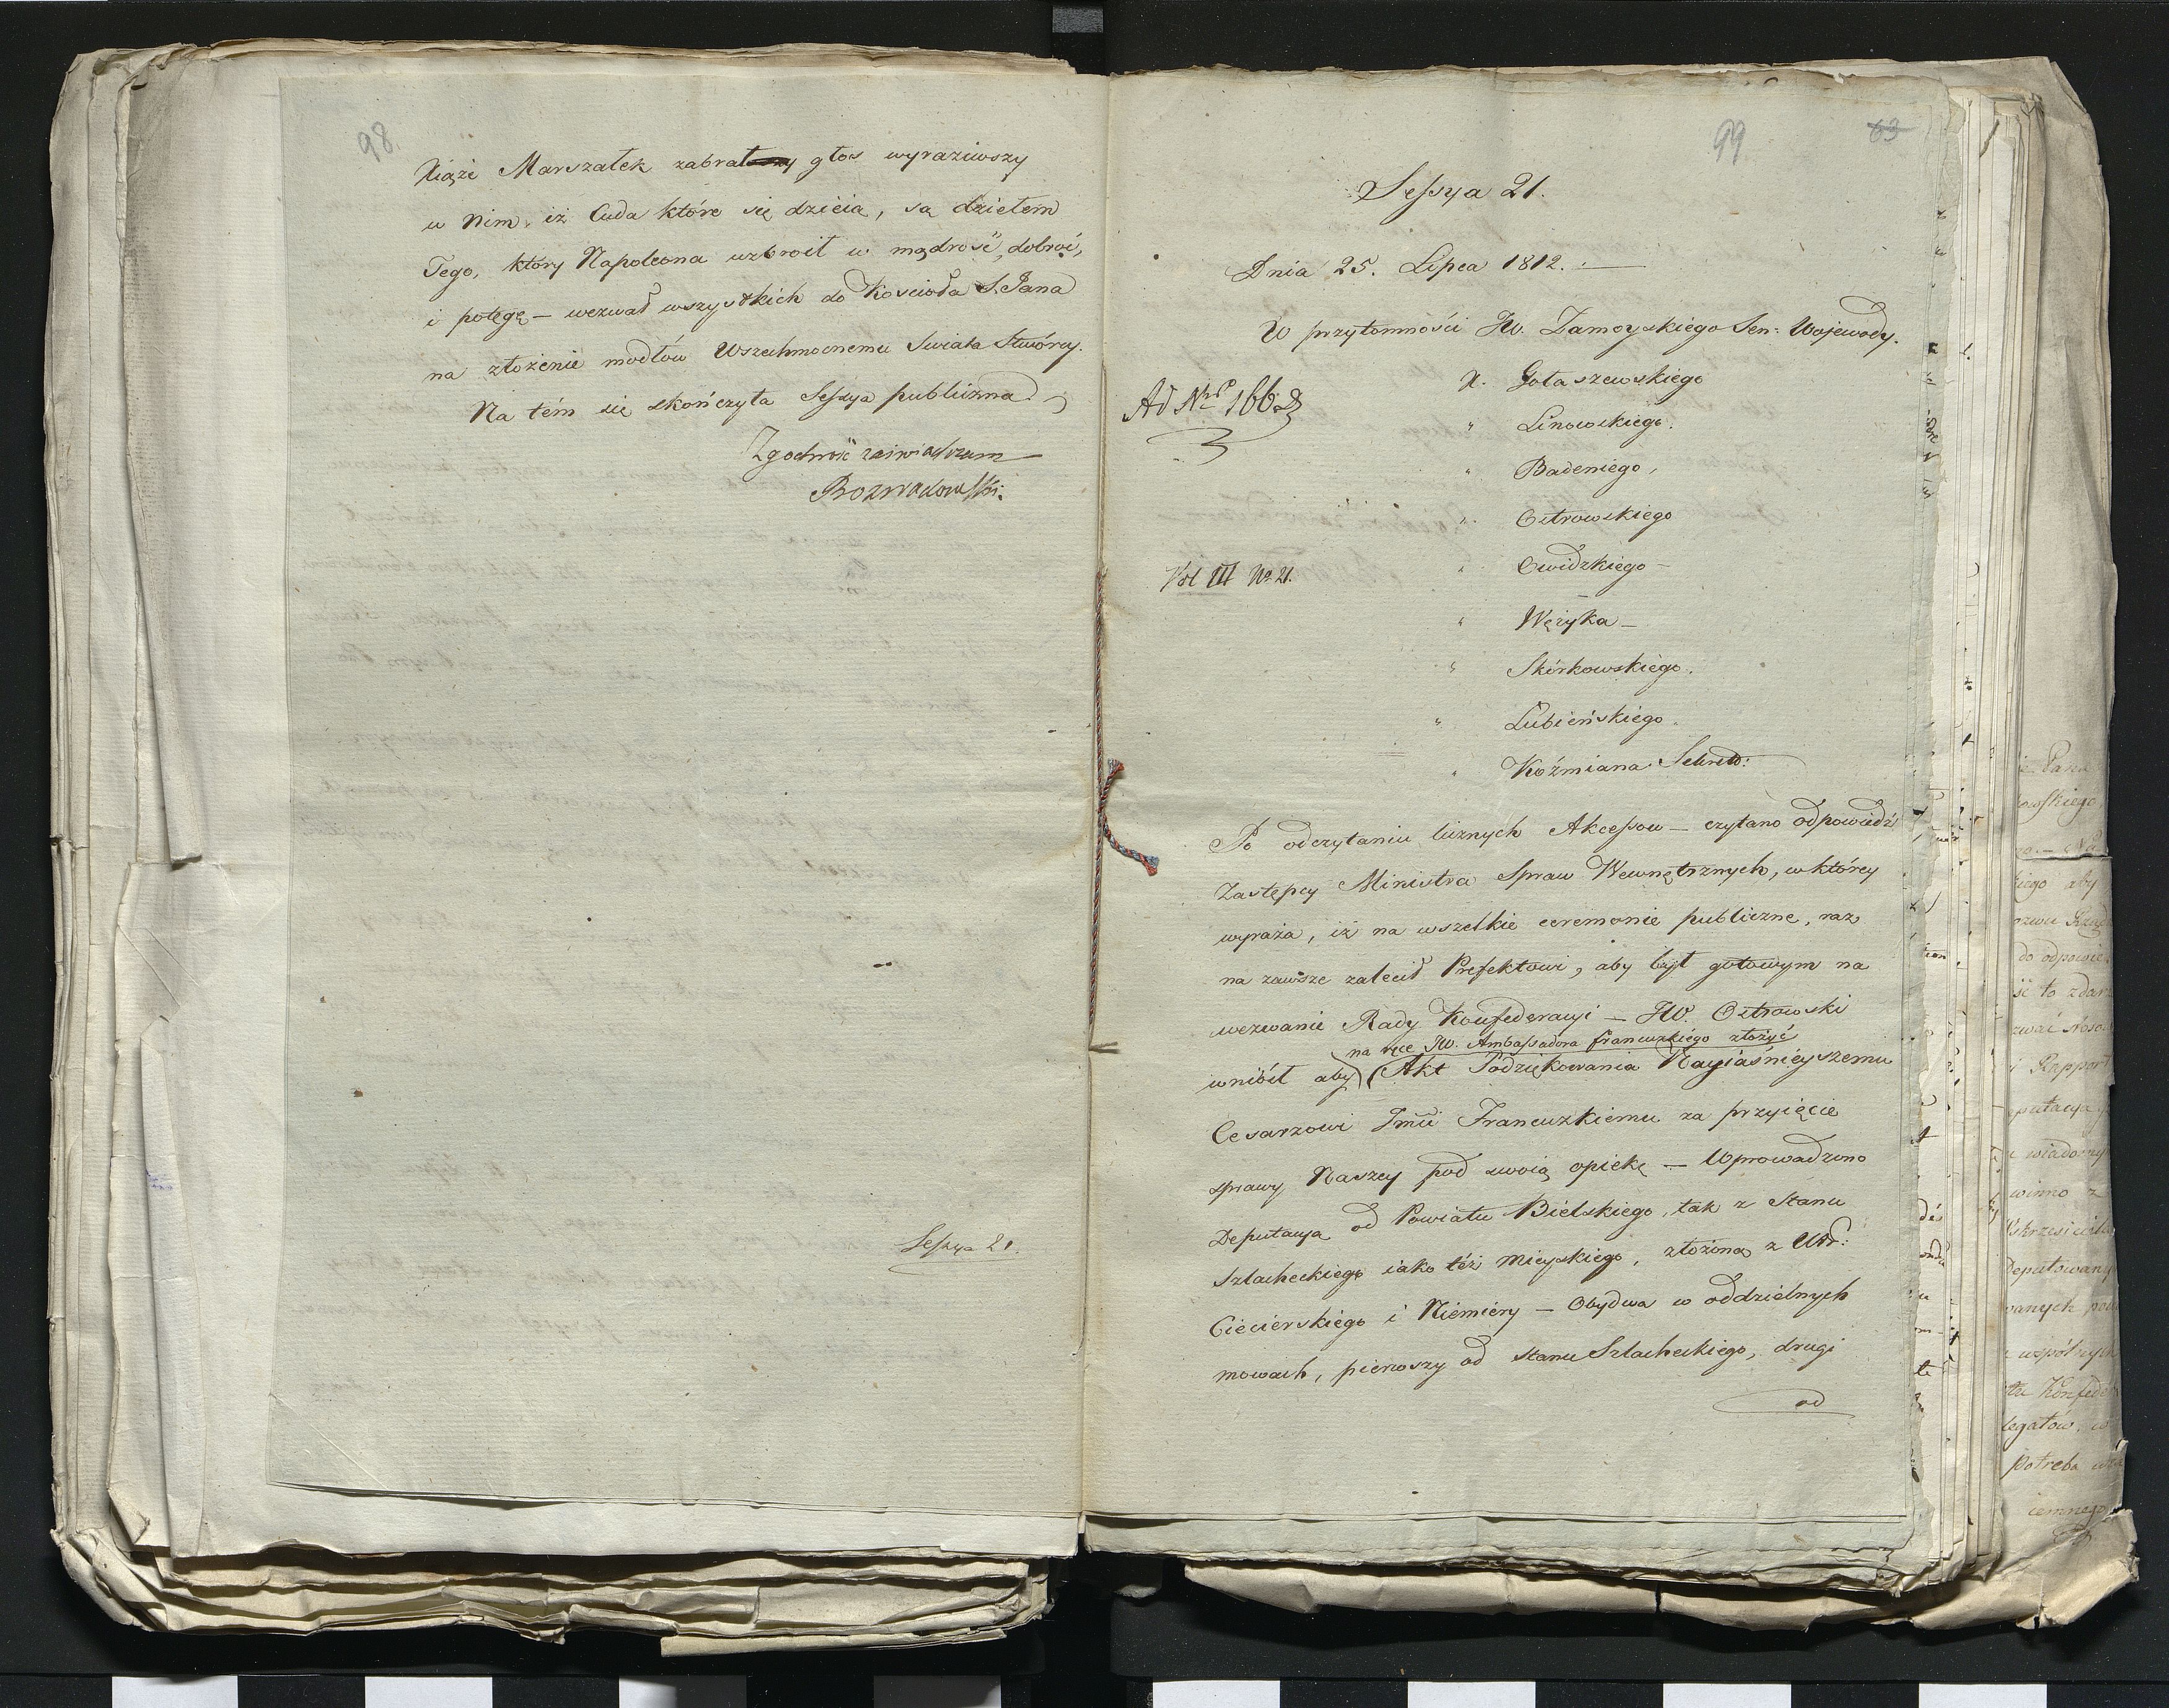 98.
Xiąże Marszałek zabrał głos wyraziwszy
w Nim, iż Cuda które się dzieia, są dziełem
Tego, który Napoleona uzbroił w mądrość, dobroć,
i potęgę — wezwał wszystkich do Kościoła S. Jana
na złożenie modłów Wszechmocnemu Swiata Stwórcy.
Na tém się skończyła Sessya publiczna.
Zgodność zaswiadczam
Rozwadowski.
Sessya 21.
99
63
Sessya 21.
Dnia 25. Lipca 1812.
W przytomności JW. Zamoyskiego Sen: Wojewody.
X. Gołaszewskiego
Ad Nrum 166.
" Linowskiego.
" Badeniego,
" Ostrowskiego
" Owidzkiego —
Vol III No. 21.
" Wężyka —
" Skórkowskiego.
" Lubieńskiego.
" Koźmiana Sekret:
Po odczytaniu licznych Akcessow — czytano odpowiedź
Zastępcy Ministra Spraw Wewnętrznych, w którey
wyraża, iż na wszelkie ceremonie publiczne, raz
na zawsze zalecił Prefektowi, aby był gotowym na
wezwanie Rady Konfederacyi — JW. Ostrowski
na ręce JW. Ambassadora francuzkiego złożyć
wniósł aby Akt Podziękowania Nayiaśnieyszemu
Cesarzowi Jmci Francuzkiemu za przyięcie
sprawy Naszey pod swoią opiekę — Wprowadzono
Deputacya od Powiatu Bielskiego, tak z Stanu
Szlacheckiego iako też mieyskiego, złożoną z Ur:
Ciecierskiego i Niemiery — Obydwa w oddzielnych
mowach, pierwszy od stanu Szlacheckiego, drugi
od